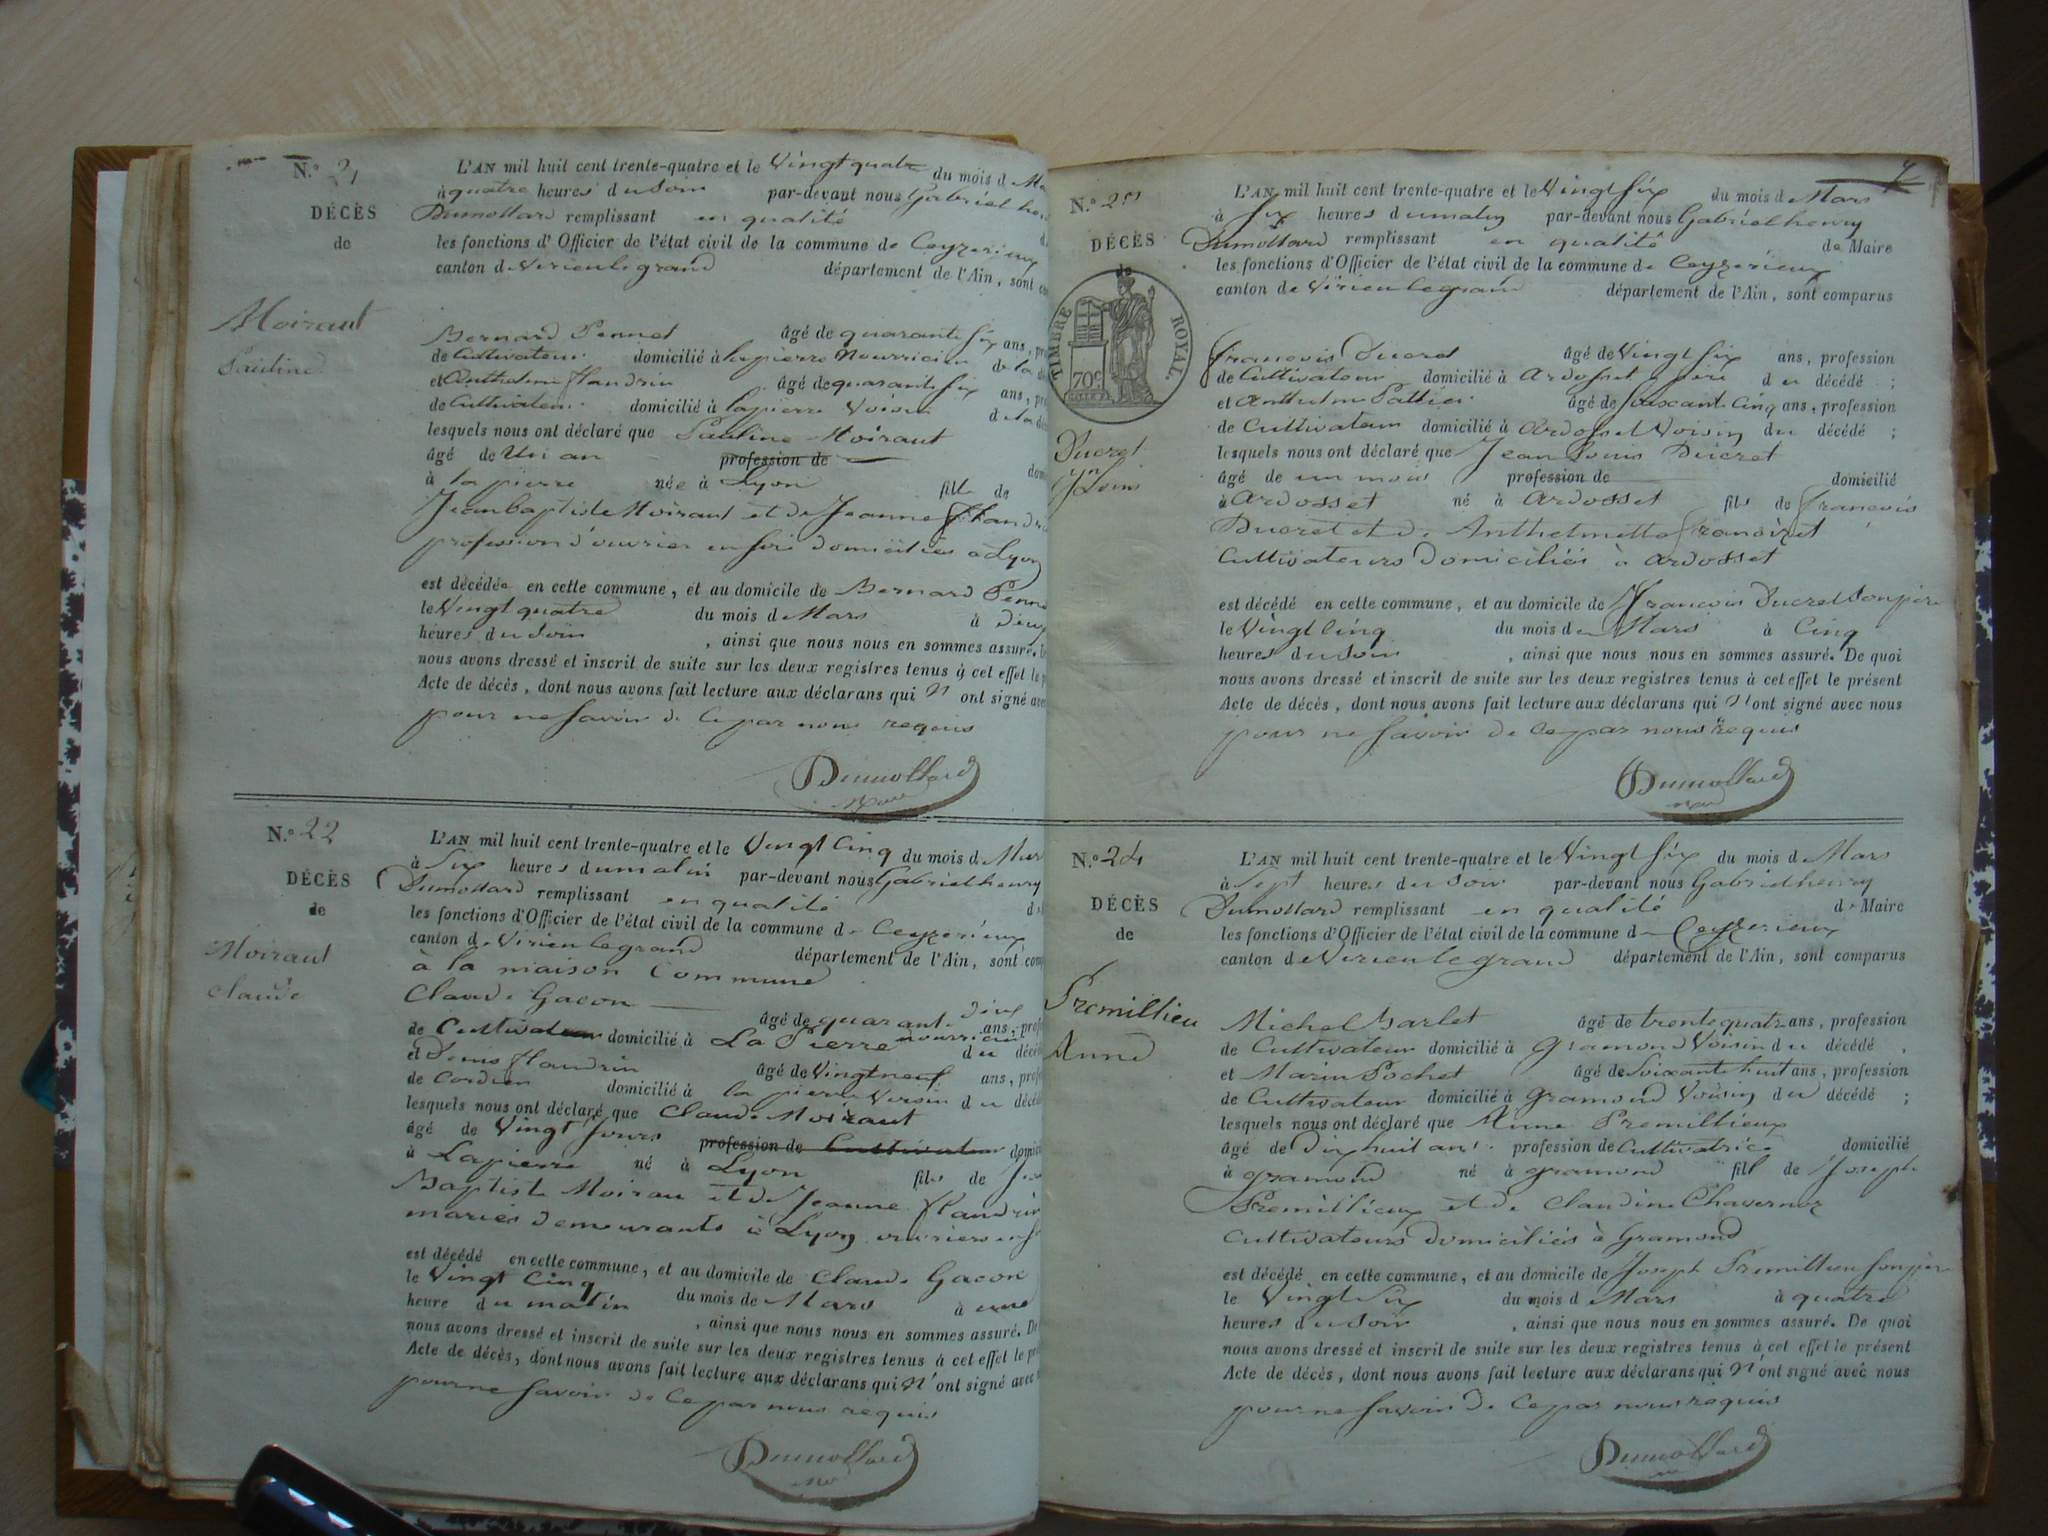 N.° 21
DÉCÈS
de
Moiraut
Pauline
L'AN mil huit cent trente-quatre et le Vingt quatre du mois d Ma
à quatre heures du Soir par-devant nous Gabriel hen
Dumollard remplissant en qualité d
les fonctions d'Officier de l'état civil de la commune de Ceyzerieux
canton de Virieu le grand département de l'Ain, sont co
Bernard Pennet âgé de quarante six ans, pro
de Cultivateur domicilié à lapierre Nourricier de la dé
et Anthelme flandrin âgé de quarante six ans, pro
de Cultivateur domicilié à lapierre Voisin de la dé
lesquels nous ont déclaré que Pauline Moiraut
âgé de Un an profession de domi
à la pierre née à Lyon fille de
Jean baptiste Moiraut et de Jeanne flandri
profession d'ouvrier en soie domiciliés à Lyon
est décédée en cette commune, et au domicile de Bernard Penne
le Vingt quatre du mois de Mars à Deux
heures du Soir , ainsi que nous nous en sommes assuré.
nous avons dressé et inscrit de suite sur les deux registres tenus à cet effet le p
Acte de décès, dont nous avons fait lecture aux déclarans qui N' ont signé avec
pour ne Savoir de Ce par nous requis
Dumollard
Maire
N.° 22
DÉCÈS
de
Moiraut
Claude
L'AN mil huit cent trente-quatre et le Vingt Cinq du mois d Mars
à Six heures du matin par-devant nous Gabriel henry
Dumollard remplissant en qualité d
les fonctions d'Officier de l'état civil de la commune de Ceyzerieux
canton de Virieu le grand département de l'Ain, sont com
à la maison Commune
Claude Gacon âgé de quarante deux ans, profe
de Cultivateur domicilié à La Pierre nourricier du décéd
et Denis flandrin âgé de Vingt neuf ans, profe
de Cordier domicilié à la pierre Voisin du décéd
lesquels nous ont déclaré que Claude Moiraut
âgé de Vingt Jours profession de Cultivateur domici
à Lapierre né à Lyon fils de Jean
Baptiste Moirau et de Jeanne flandrin
mariés demeurants à Lyon ouvriers en S
est décédé en cette commune, et au domicile de Claude Gacon
le Vingt Cinq du mois de Mars à une
heure du matin , ainsi que nous nous en sommes assuré. De
nous avons dressé et inscrit de suite sur les deux registres tenus à cet effet le pré
Acte de décès, dont nous avons fait lecture aux déclarans qui N'ont signé avec
pour ne Savoir de Ce par nous requis
Dumollard
7
N.° 23
DÉCÈS
de
TIMBRE ROYAL.
70c
Ducret
Jn Louis
L'AN mil huit cent trente-quatre et le Vingt Six du mois d Mars
à Six heures du matin par-devant nous Gabriel henry
Dumollard remplissant en qualité de Maire
les fonctions d'Officier de l'état civil de la commune de Ceyzerieux
canton de Virieu le grand département de l'Ain, sont comparus
francois Ducret âgé de Vingt Six ans, profession
de Cultivateur domicilié à Ardosset père du décédé ;
et Anthelme Pallier âgé de Soixante Cinq ans, profession
de Cultivateur domicilié à Ardosset Voisin du décédé ;
lesquels nous ont déclaré que Jean Louis Ducret
âgé de un mois profession de domicilié
à Ardosset né à Ardosset fils de francois
Ducret et de Anthelmette
Cultivateurs Domiciliés à Ardosset
est décédé en cette commune, et au domicile de francois Ducret Son père
le Vingt Cinq du mois de Mars à Cinq
heures du Soir , ainsi que nous nous en sommes assuré. De quoi
nous avons dressé et inscrit de suite sur les deux registres tenus à cet effet le présent
Acte de décès, dont nous avons fait lecture aux déclarans qui N'ont signé avec nous
pour ne Savoir de Ce par nous requis
Dumollard
N.° 24
DÉCÈS
de
Premillieu
Anne
L'AN mil huit cent trente-quatre et le Vingt Six du mois d Mars
à Sept heures du Soir par-devant nous Gabriel henry
Dumollard remplissant en qualité de Maire
les fonctions d'Officier de l'état civil de la commune de Ceyzerieux
canton de Virieu le grand département de l'Ain, sont comparus
Michel Barlet âgé de trente quatre ans, profession
de Cultivateur domicilié à Gramond Voisin du décédé ,
et Marin Pochet âgé de Soixante huit ans, profession
de Cultivateur domicilié à Gramond Voisin du décédé ;
lesquels nous ont déclaré que Anne Premillieux
âgé de Dix huit ans profession de Cultivatrice domicilié
à Gramond né à Gramond fill de Joseph
Premillieux et de Claudine Chavernoz
Cultivateurs Domiciliés à Gramond
est décédé en cette commune, et au domicile de Joseph Premillieu Son père
le Vingt Six du mois d Mars à quatre
heures du Soir , ainsi que nous nous en sommes assuré. De quoi
nous avons dressé et inscrit de suite sur les deux registres tenus à cet effet le présent
Acte de décès, dont nous avons fait lecture aux déclarans qui N'ont signé avec nous
pour ne Savoir de Ce par nous requis
Dumollard